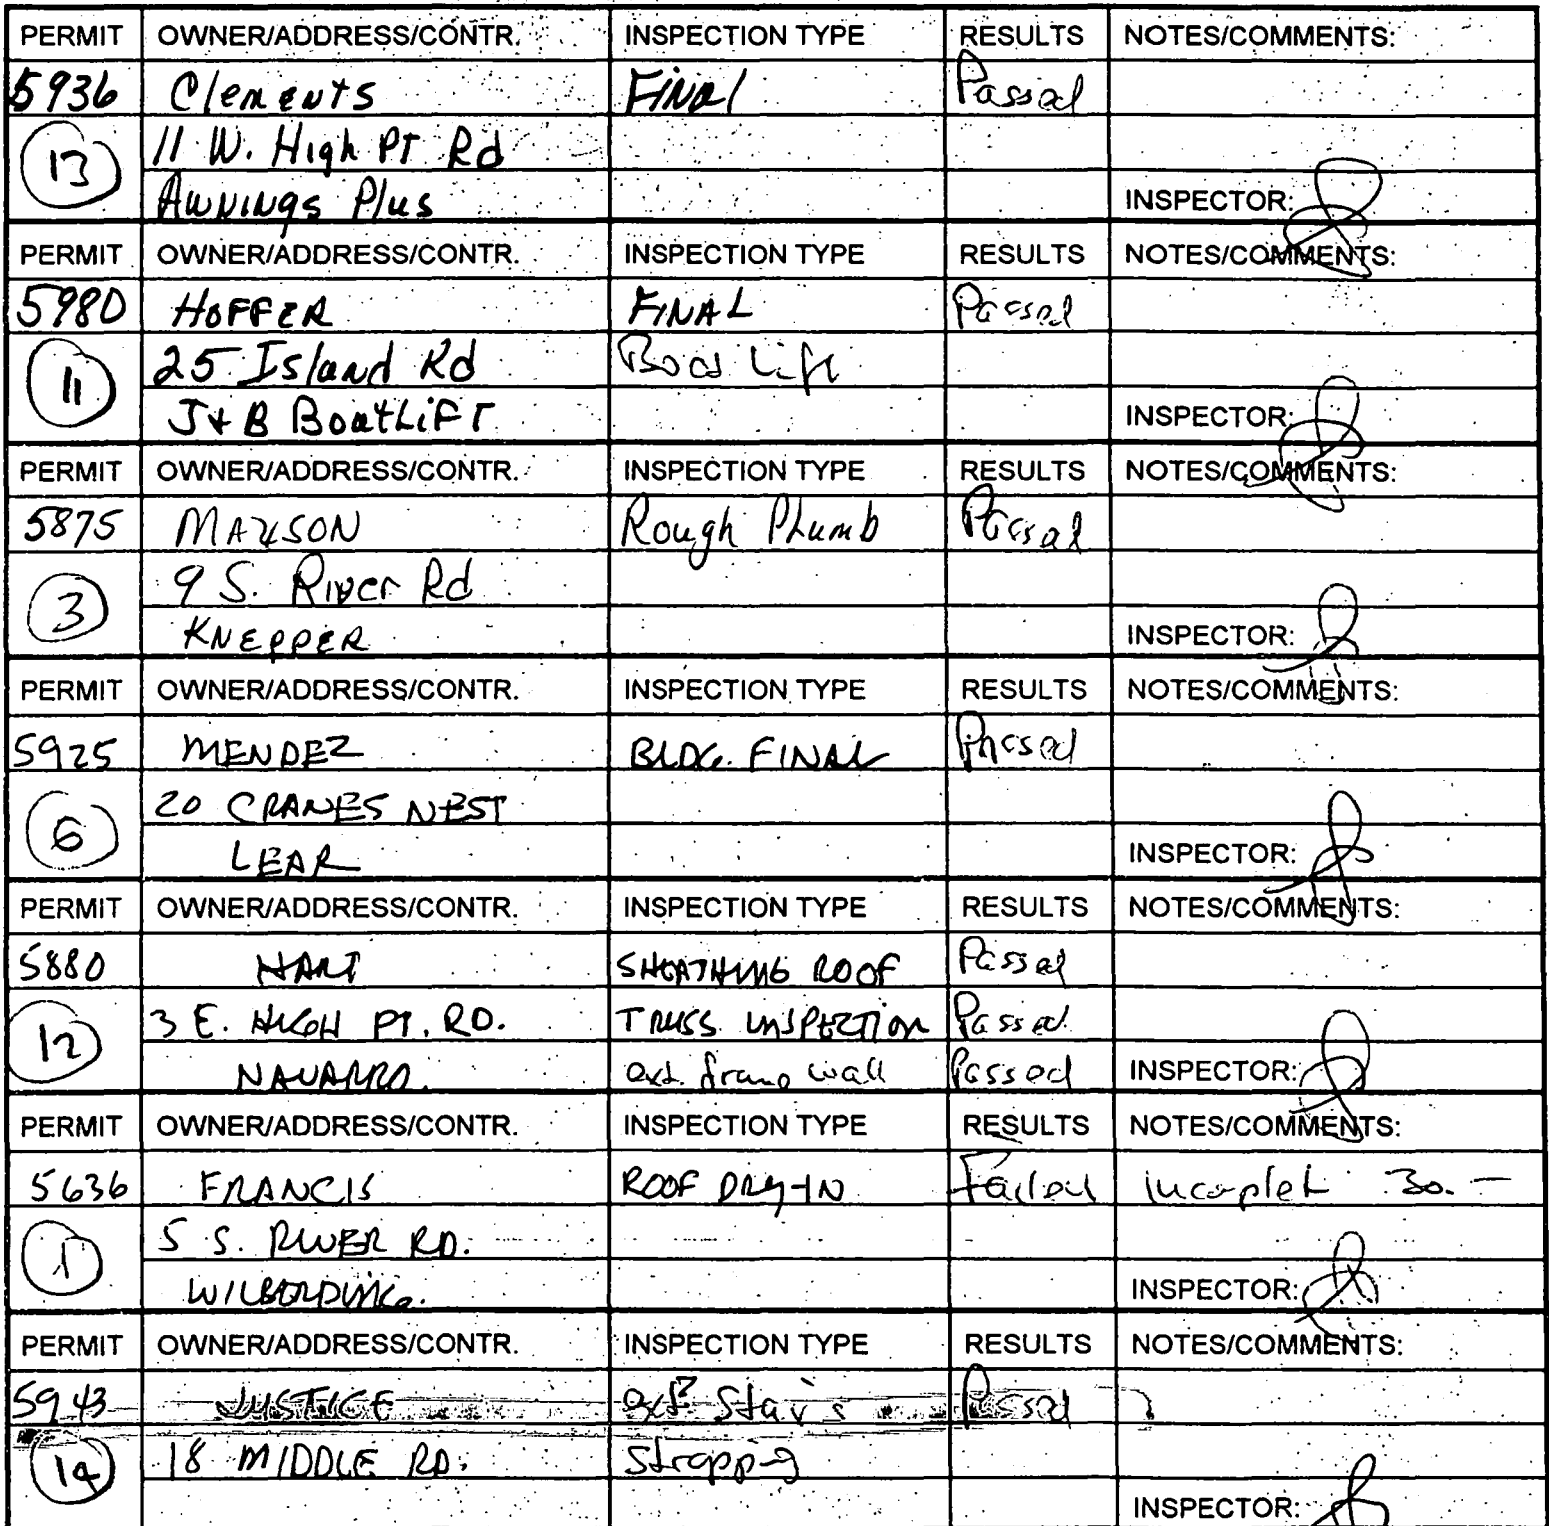 PERMIT OWNER/ADDRESS/CONTR. INSPECTION TYPE RESULTS NOTES/COMMENTS:
5936 Clements FINAL Passed
13 11 W. High PT Rd
Awnings Plus INSPECTOR:
PERMIT OWNER/ADDRESS/CONTR. INSPECTION TYPE RESULTS NOTES/COMMENTS:
5980 HOFFER FINAL Passed
11 25 Island Rd Boat Lift
J+B BoatLiFT INSPECTOR:
PERMIT OWNER/ADDRESS/CONTR. INSPECTION TYPE RESULTS NOTES/COMMENTS:
5875 Rough Plumb Passed
3 9 S. River Rd
KNEPPER INSPECTOR:
PERMIT OWNER/ADDRESS/CONTR. INSPECTION TYPE RESULTS NOTES/COMMENTS:
5925 MENDEZ BLDG. FINAL Passed
6 20 CRANES NEST
LEAR INSPECTOR:
PERMIT OWNER/ADDRESS/CONTR. INSPECTION TYPE RESULTS NOTES/COMMENTS:
5880 HART SHEATHING ROOF Passed
12 3 E. HIGH PT. RD. TRUSS INSPECTION Passed
NAVARRO. ext. frame wall Passed INSPECTOR:
PERMIT OWNER/ADDRESS/CONTR. INSPECTION TYPE RESULTS NOTES/COMMENTS:
5636 FRANCIS ROOF DRY-IN Failed incomplet 30.—
1 5 S. RIVER RD.
WILBERDING. INSPECTOR:
PERMIT OWNER/ADDRESS/CONTR. INSPECTION TYPE RESULTS NOTES/COMMENTS:
5943 JUSTICE ext. Stairs Passed
14 18 MIDDLE RD. Strapping
INSPECTOR: